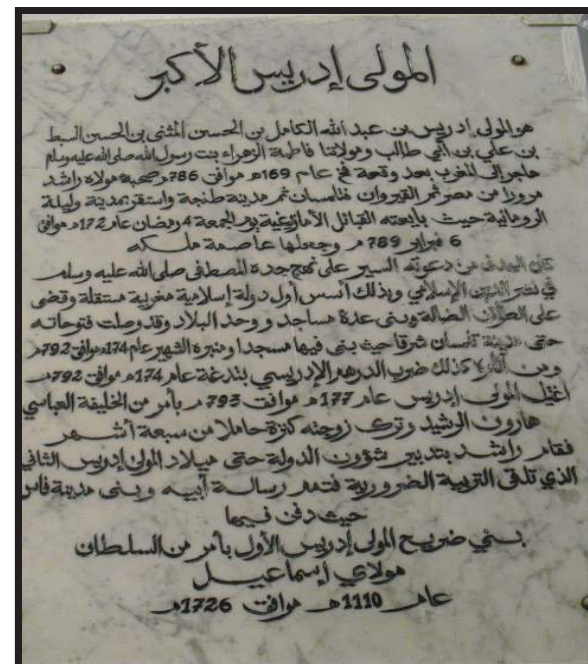 المولى إدريس الأكبر
هو المولى إدريس بن عبد الله الكامل بن الحسن المثنى بن الحسن السبط
بن علي بن أبي طالب ومولاتنا فاطمة الزهراء بنت رسول الله صلى الله عليه وسلم
هاجر إلى المغرب بعد وقعة فخ عام 169هـ موافق 786م صحبة مولاه راشد
مرورا من مصر ثم القيروان فتلمسان ثم مدينة طنجة واستقر بمدينة وليلة
الرومانية حيث بايعته القبائل الأمازيغية يوم الجمعة 4 رمضان عام 172هـ موافق
6 فبراير 789 م وجعلها عاصمة ملكه
كان الهدف من دعوته السير على نهج جده المصطفى صلى الله عليه وسلم
في نشر الدين الإسلامي وبذلك أسس أول دولة إسلامية مغربية مستقلة وقضى
على الطوائف الضالة وبنى عدة مساجد ووحد البلاد وقد وصلت فتوحاته
حتى مدينة تلمسان شرقا حيث بنى فيها مسجدا ومنبره الشهير عام 174هـ موافق 792م
ومن آثاره كذلك ضرب الدرهم الإدريسي بتدغة عام 174هـ موافق 792م
أغتيل المولى إدريس عام 177هـ موافق 793 م بأمر من الخليفة العباسي
هارون الرشيد وترك زوجته كنزة حاملا من سبعة أشهر
فقام راشد بتدبير شؤون الدولة حتى ميلاد المولى إدريس الثاني
الذي تلقى التربية الضرورية فتمم رسالة أبيه وبنى مدينة فاس
حيث دفن فيها
بني ضريح المولى إدريس الأول بأمر من السلطان
مولاي إسماعيل
عام 1110هـ موافق 1726م